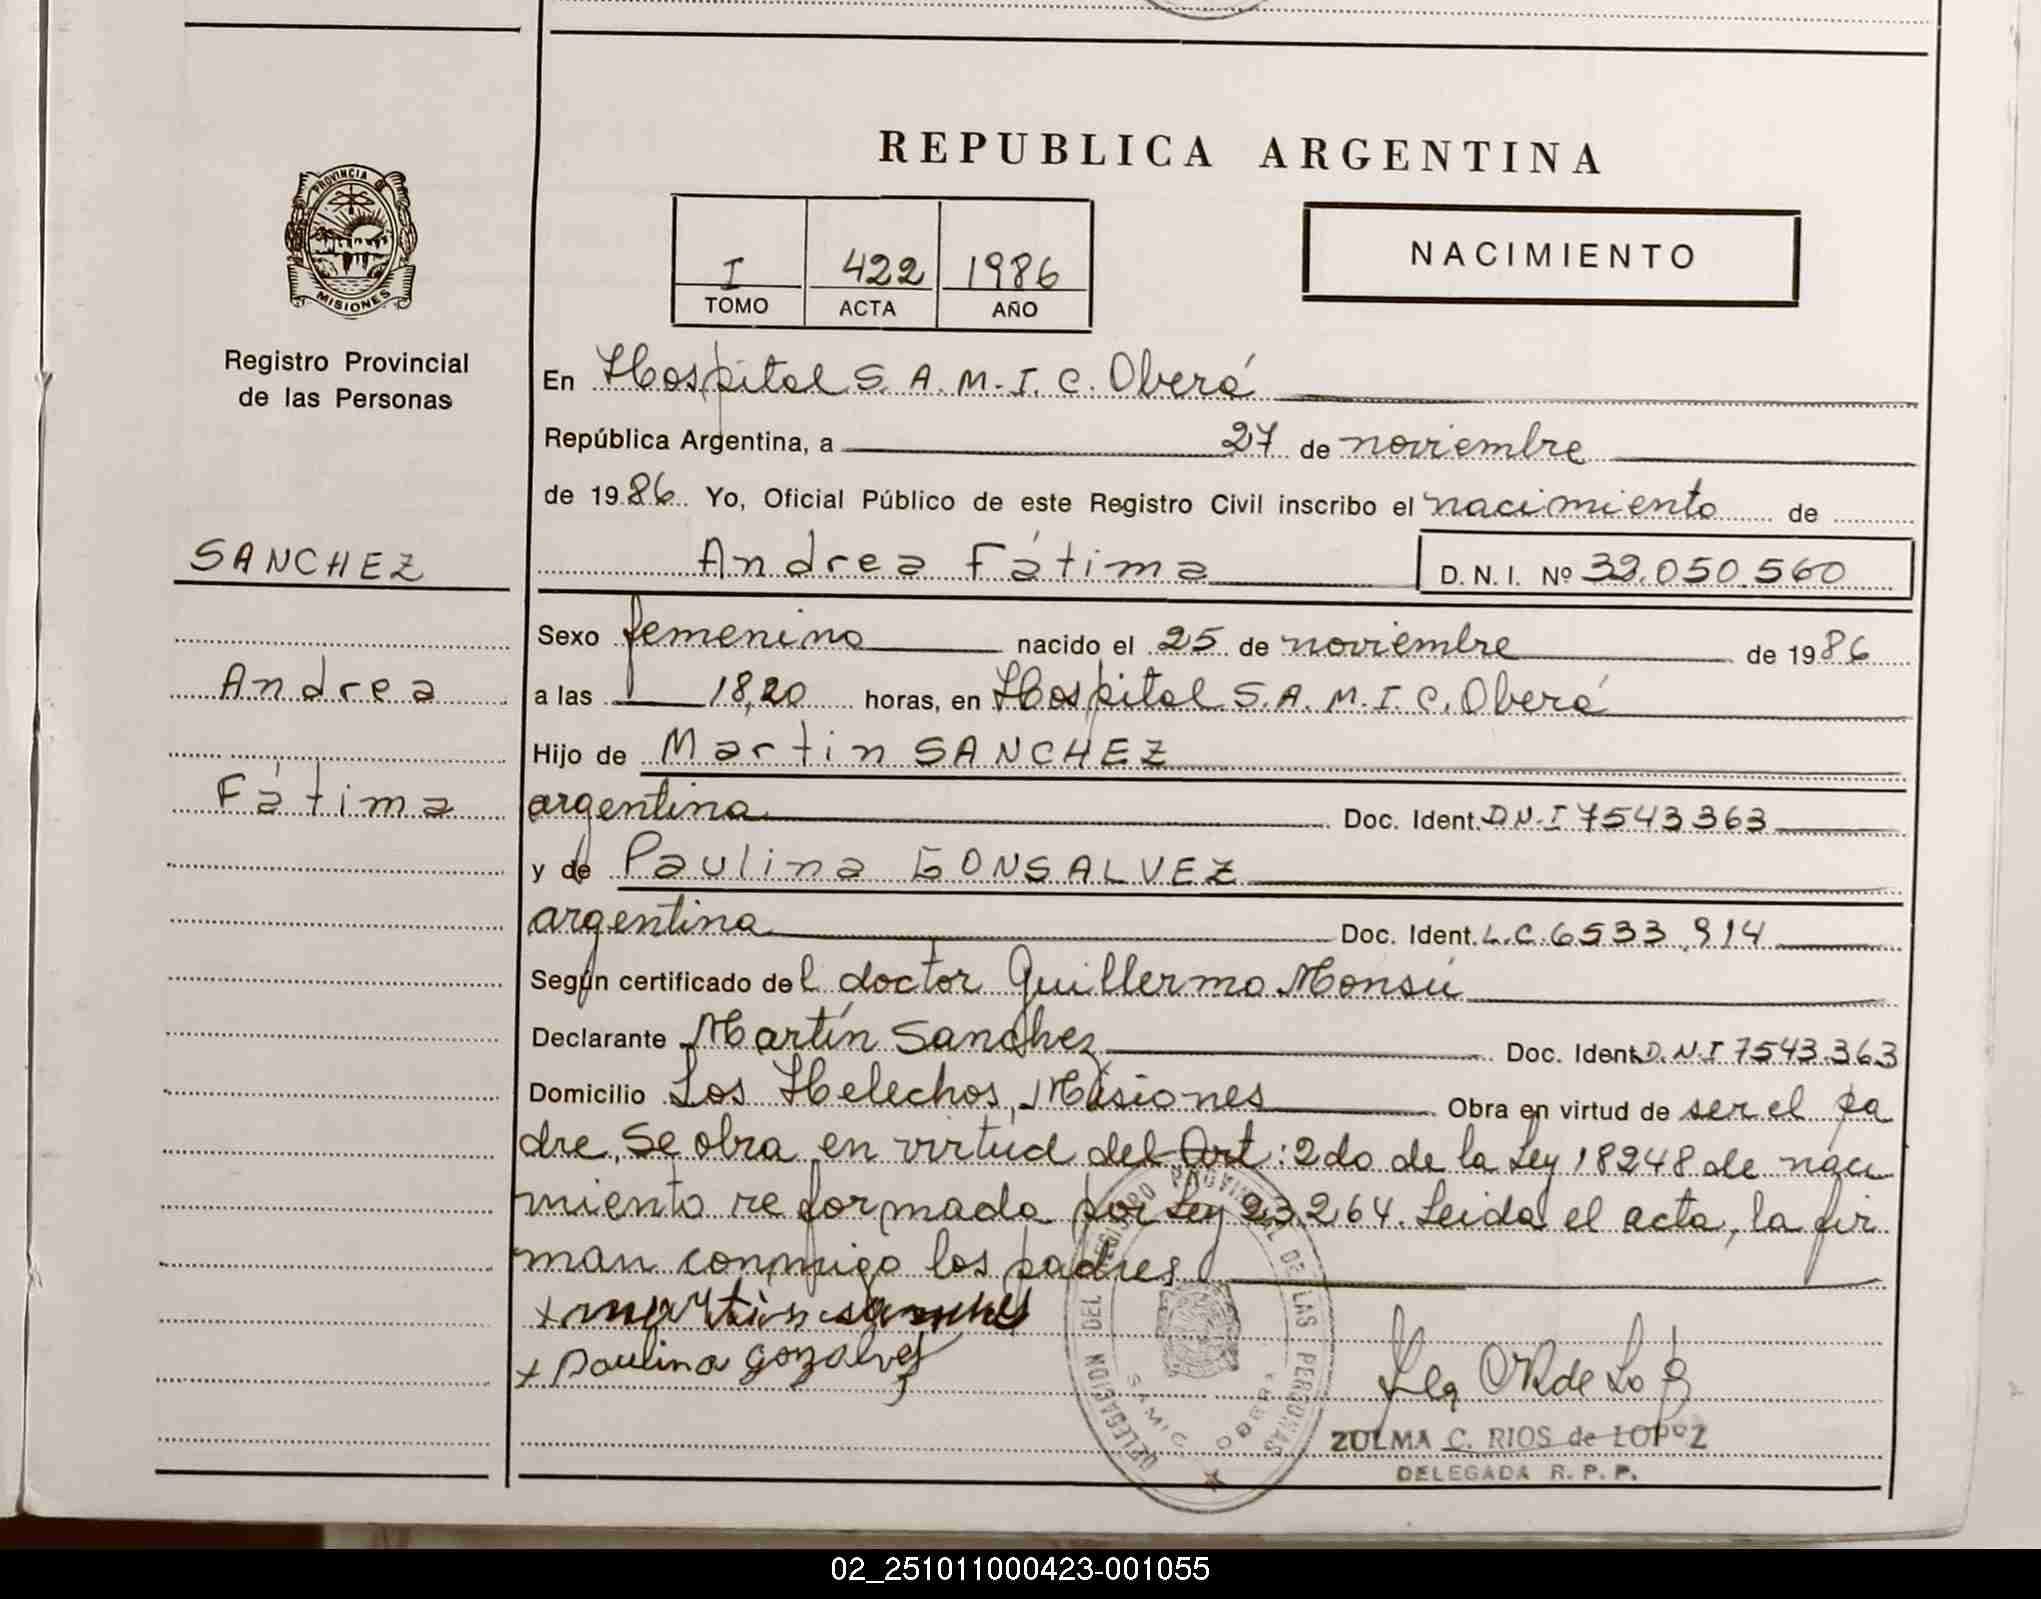 REPUBLICA ARGENTINA
PROVINCIA DE
MISIONES
Registro Provincial
de las Personas
I 422 1986
TOMO ACTA AÑO
NACIMIENTO
En Hospital S.A.M.I.C. Oberá
República Argentina, a 27 de noviembre
de 1986 Yo, Oficial Público de este Registro Civil inscribo el nacimiento de
SANCHEZ
Andrea Fátima D.N.I. Nº 32.050.560
Sexo femenino nacido el 25 de noviembre de 1986
Andrea
a las 18,20 horas, en Hospital S.A.M.I.C. Oberá
Hijo de Martin SANCHEZ
Fátima
argentina Doc. Ident. D.N.I 7543363
y de Paulina GONSALVEZ
argentina Doc. Ident. L.C. 6533.914
Según certificado del doctor Guillermo Monsú
Declarante Martín Sanchez Doc. Ident. D.N.I 7543.363
Domicilio Los Helechos, Misiones Obra en virtud de ser el pa
dre, Se obra en virtud del Art: 2do de la Ley 18248 de naci
miento reformada por Ley 23.264. Leida el acta, la fir
man conmigo los padres
x martin sanchez
x Paulina gonzalvez
DELEGACION DEL REGISTRO PROVINCIAL DE LAS PERSONAS
SAMIC OBERA
ZULMA C. RIOS de LOPEZ
DELEGADA R. P. P.
02_251011000423-001055